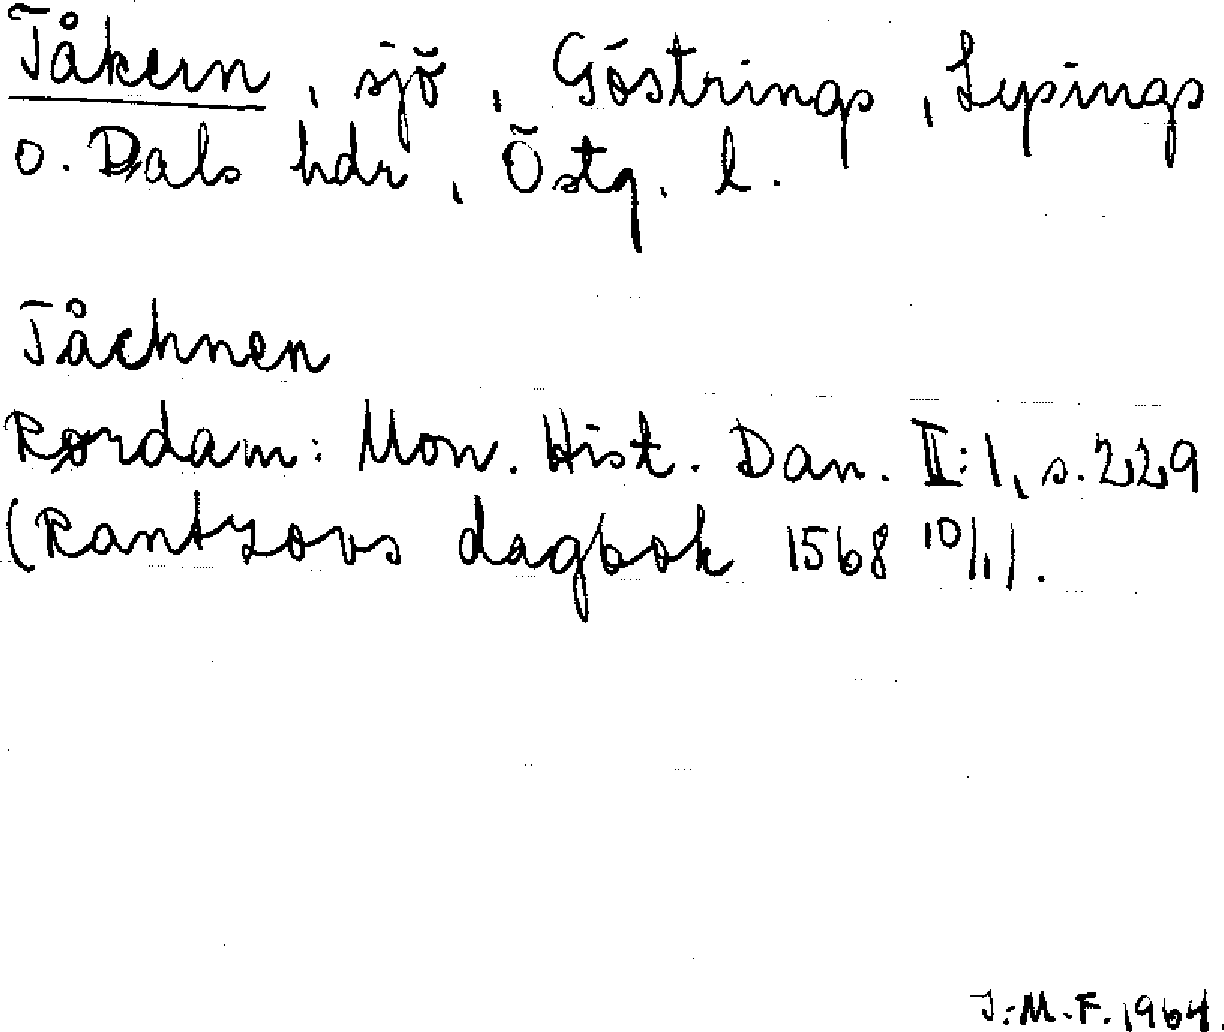 Tåkern, sjö, Göstrings, Lysings
o. Dals hdr, Östg. l.
Tåchnen
Rørdam: Mon. Hist. Dan. II:1, s. 229
(Rantzovs dagbok 1568 10/1).
J:M.F. 1964.